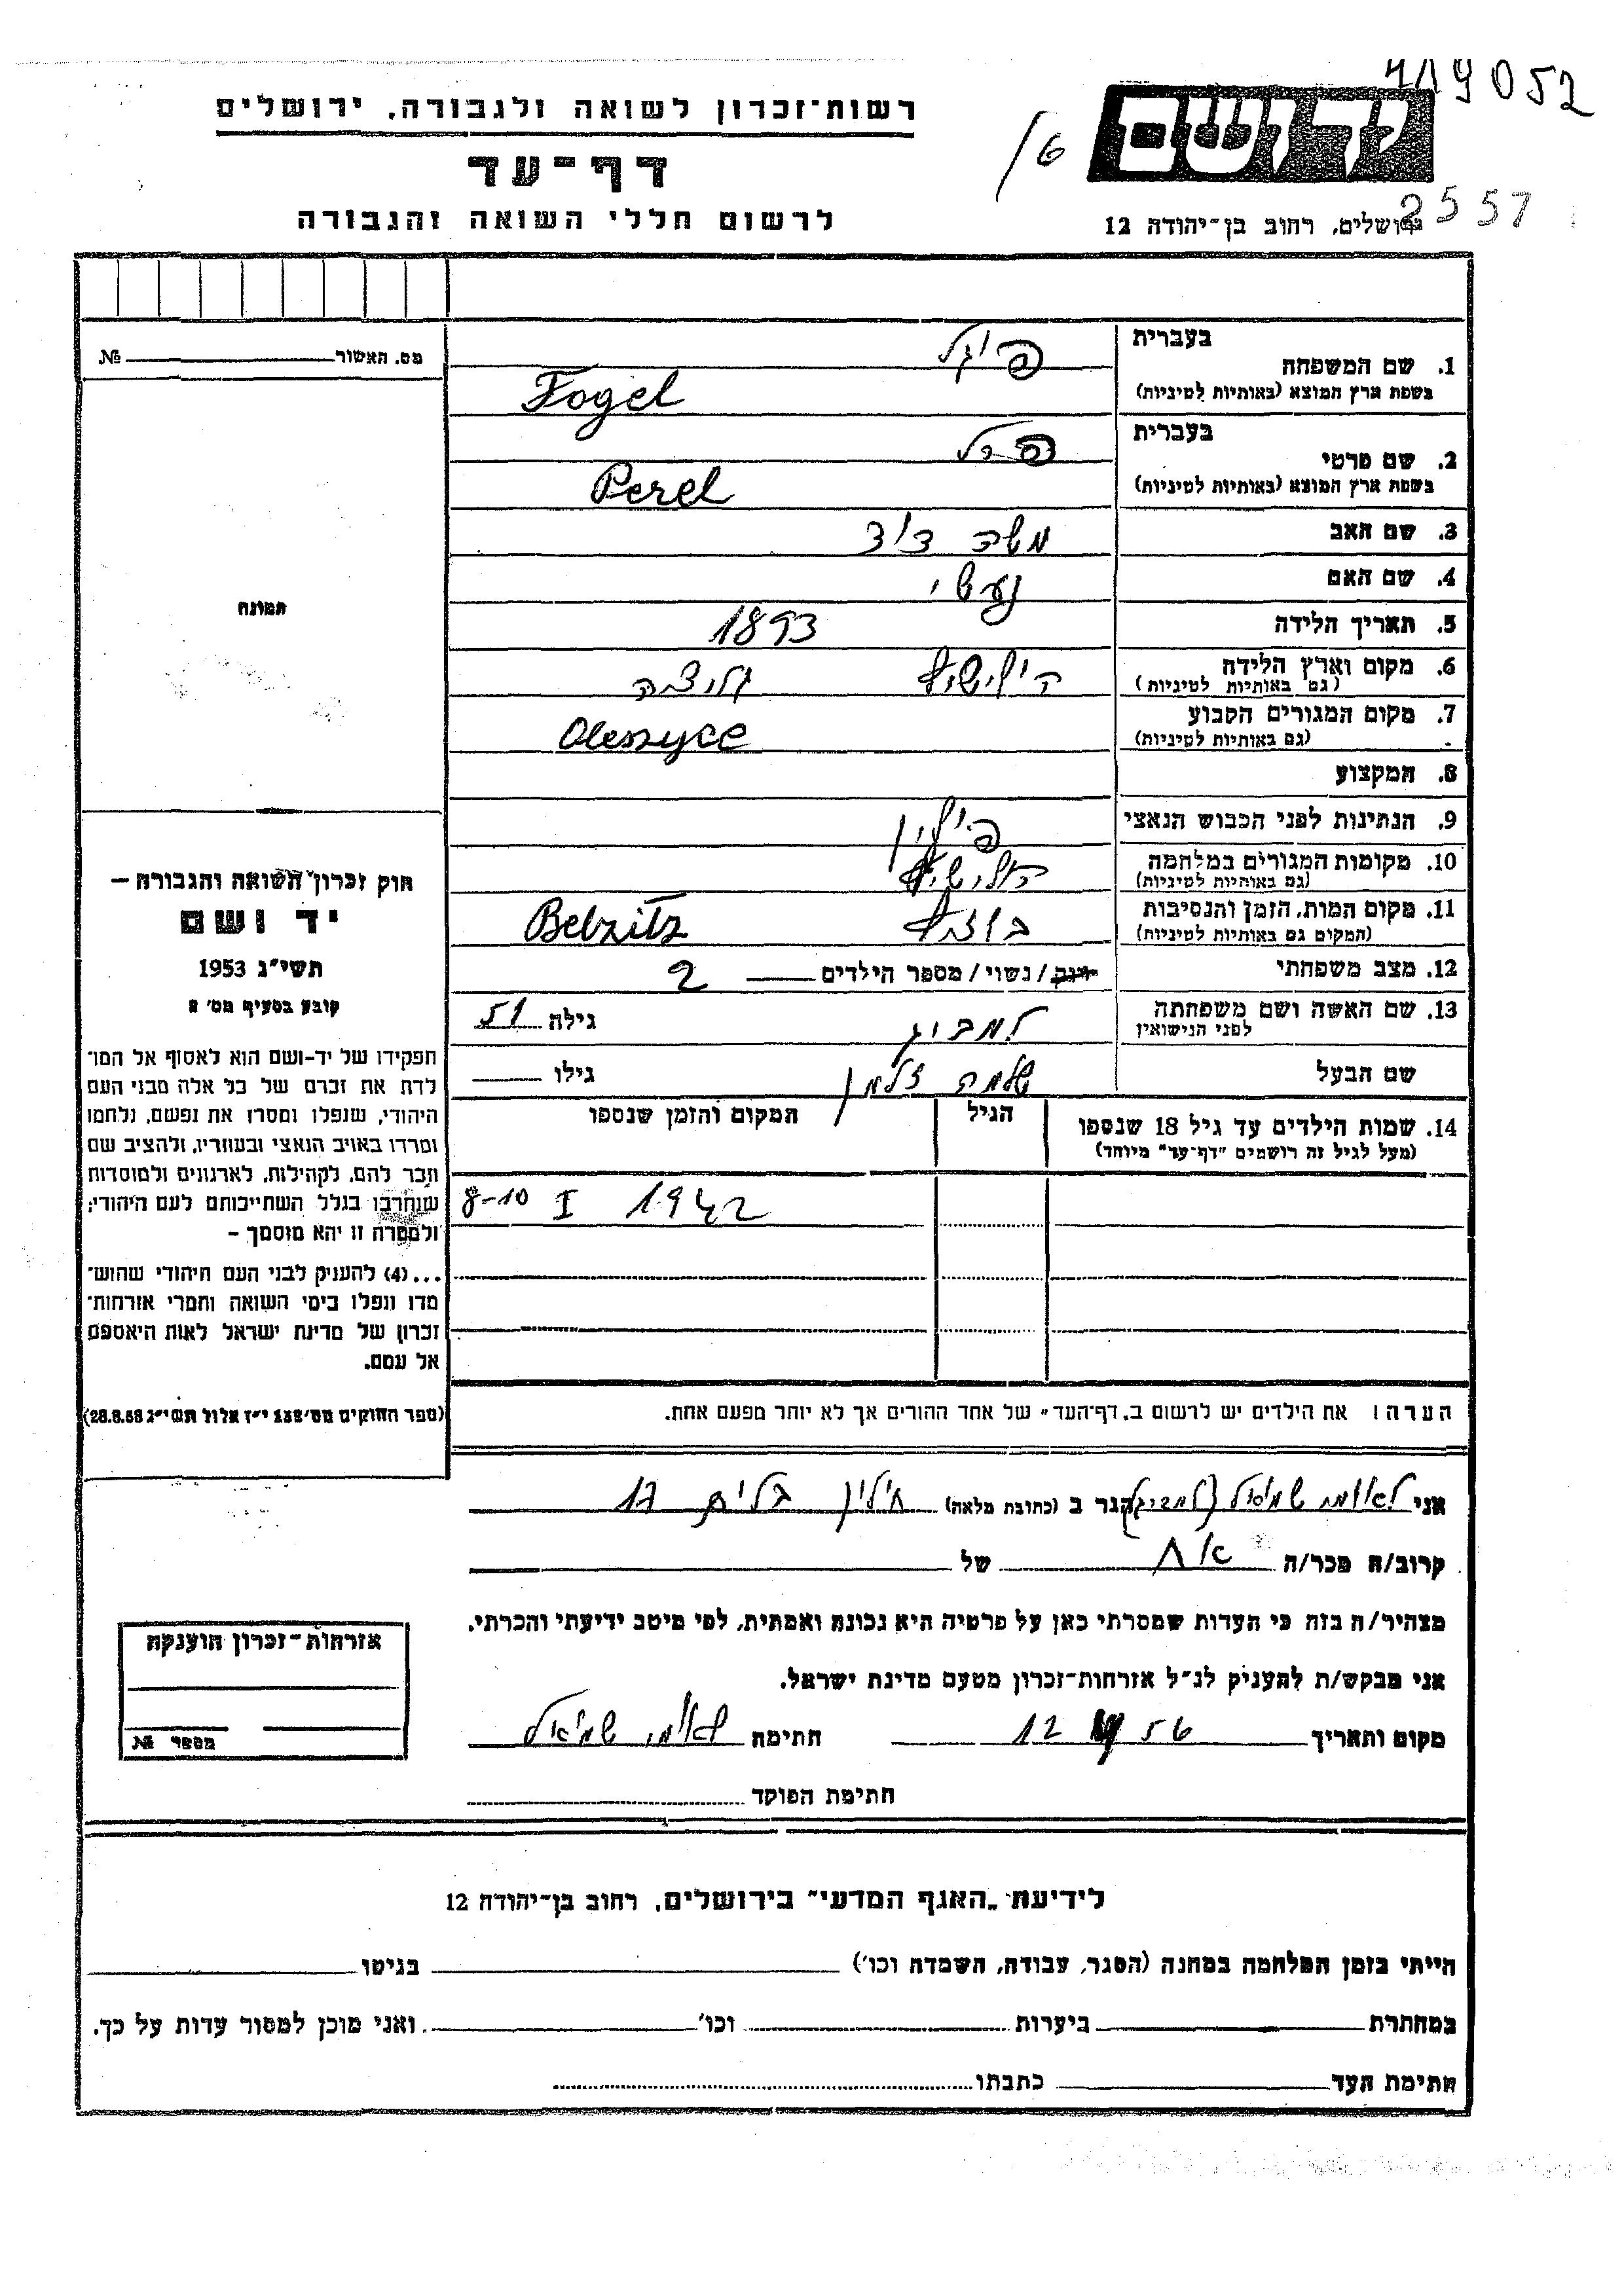 119052
רשות-זכרון לשואה ולגבורה, ירושלים
דף-עד
לרשום חללי השואה והגבורה
16
ידושם
2557
ירושלים, רחוב בן-יהודה 12
בעברית
1. שם המשפחה
פוגל
בשפת ארץ המוצא (באותיות לטיניות)
Fogel
בעברית
2. שם פרטי
פרל
בשפת ארץ המוצא (באותיות לטיניות)
Perel
3. שם האב משה דוד
4. שם האם
5. תאריך הלידה 1893
6. מקום וארץ הלידה
(גם באותיות לטיניות)
7. מקום המגורים הקבוע
(גם באותיות לטיניות)
Oleszyce
8. המקצוע
9. הנתינות לפני הכבוש הנאצי פולין
10. מקומות המגורים במלחמה
(גם באותיות לטיניות)
11. מקום המות, הזמן והנסיבות
(המקום גם באותיות לטיניות)
Belzitz
12. מצב משפחתי רוק / נשוי / מספר הילדים 2
13. שם האשה ושם משפחתה
לפני הנישואין
למביג גילה 51
שם הבעל שלמה זלמן גילו
14. שמות הילדים עד גיל 18 שנספו
(מעל לגיל זה רושמים "דף-עד" מיוחד)
הגיל
המקום והזמן שנספו
8-10 I 1942
הערה: את הילדים יש לרשום ב"דף-העד" של אחד ההורים אך לא יותר מפעם אחת.
אני שמואל הגר ב (כתובת מלאה) גלים 17
קרוב/ה מכר/ה אח של
מצהיר/ה בזה כי העדות שמסרתי כאן על פרטיה היא נכונה ואמתית, לפי מיטב ידיעתי והכרתי.
אני מבקש/ת להעניק לנ"ל אזרחות-זכרון מטעם מדינת ישראל.
מקום ותאריך 12 56 חתימה לאומי שמואל
חתימת הפוקד
מס. האשור №
תמונה
חוק זכרון השואה והגבורה –
יד ושם
תשי"ג 1953
קובע בסעיף מס' 2
תפקידו של יד-ושם הוא לאסוף אל המו־
לדת את זכרם של כל אלה מבני העם
היהודי, שנפלו ומסרו את נפשם, נלחמו
ומרדו באויב הנאצי ובעוזריו, ולהציב שם
וזכר להם, לקהילות, לארגונים ולמוסדות
שנחרבו בגלל השתייכותם לעם היהודי;
ולמטרה זו יהא מוסמך –
...(4) להעניק לבני העם היהודי שהוש־
מדו ונפלו בימי השואה והמרי אזרחות־
זכרון של מדינת ישראל לאות היאספם
אל עמם.
(ספר החוקים מס' 132 י"ז אלול תשי"ג 28.8.53)
אזרחות-זכרון הוענקה
מספר №
לידיעת "האגף המדעי" בירושלים, רחוב בן-יהודה 12
הייתי בזמן המלחמה במחנה (הסגר, עבודה, השמדה וכו') בגיטו
במחתרת ביערות וכו' ואני מוכן למסור עדות על כך.
חתימת העד כתבתו